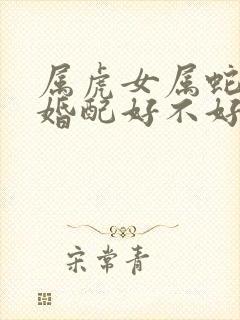 属虎女属蛇
婚配好不好
宋常青